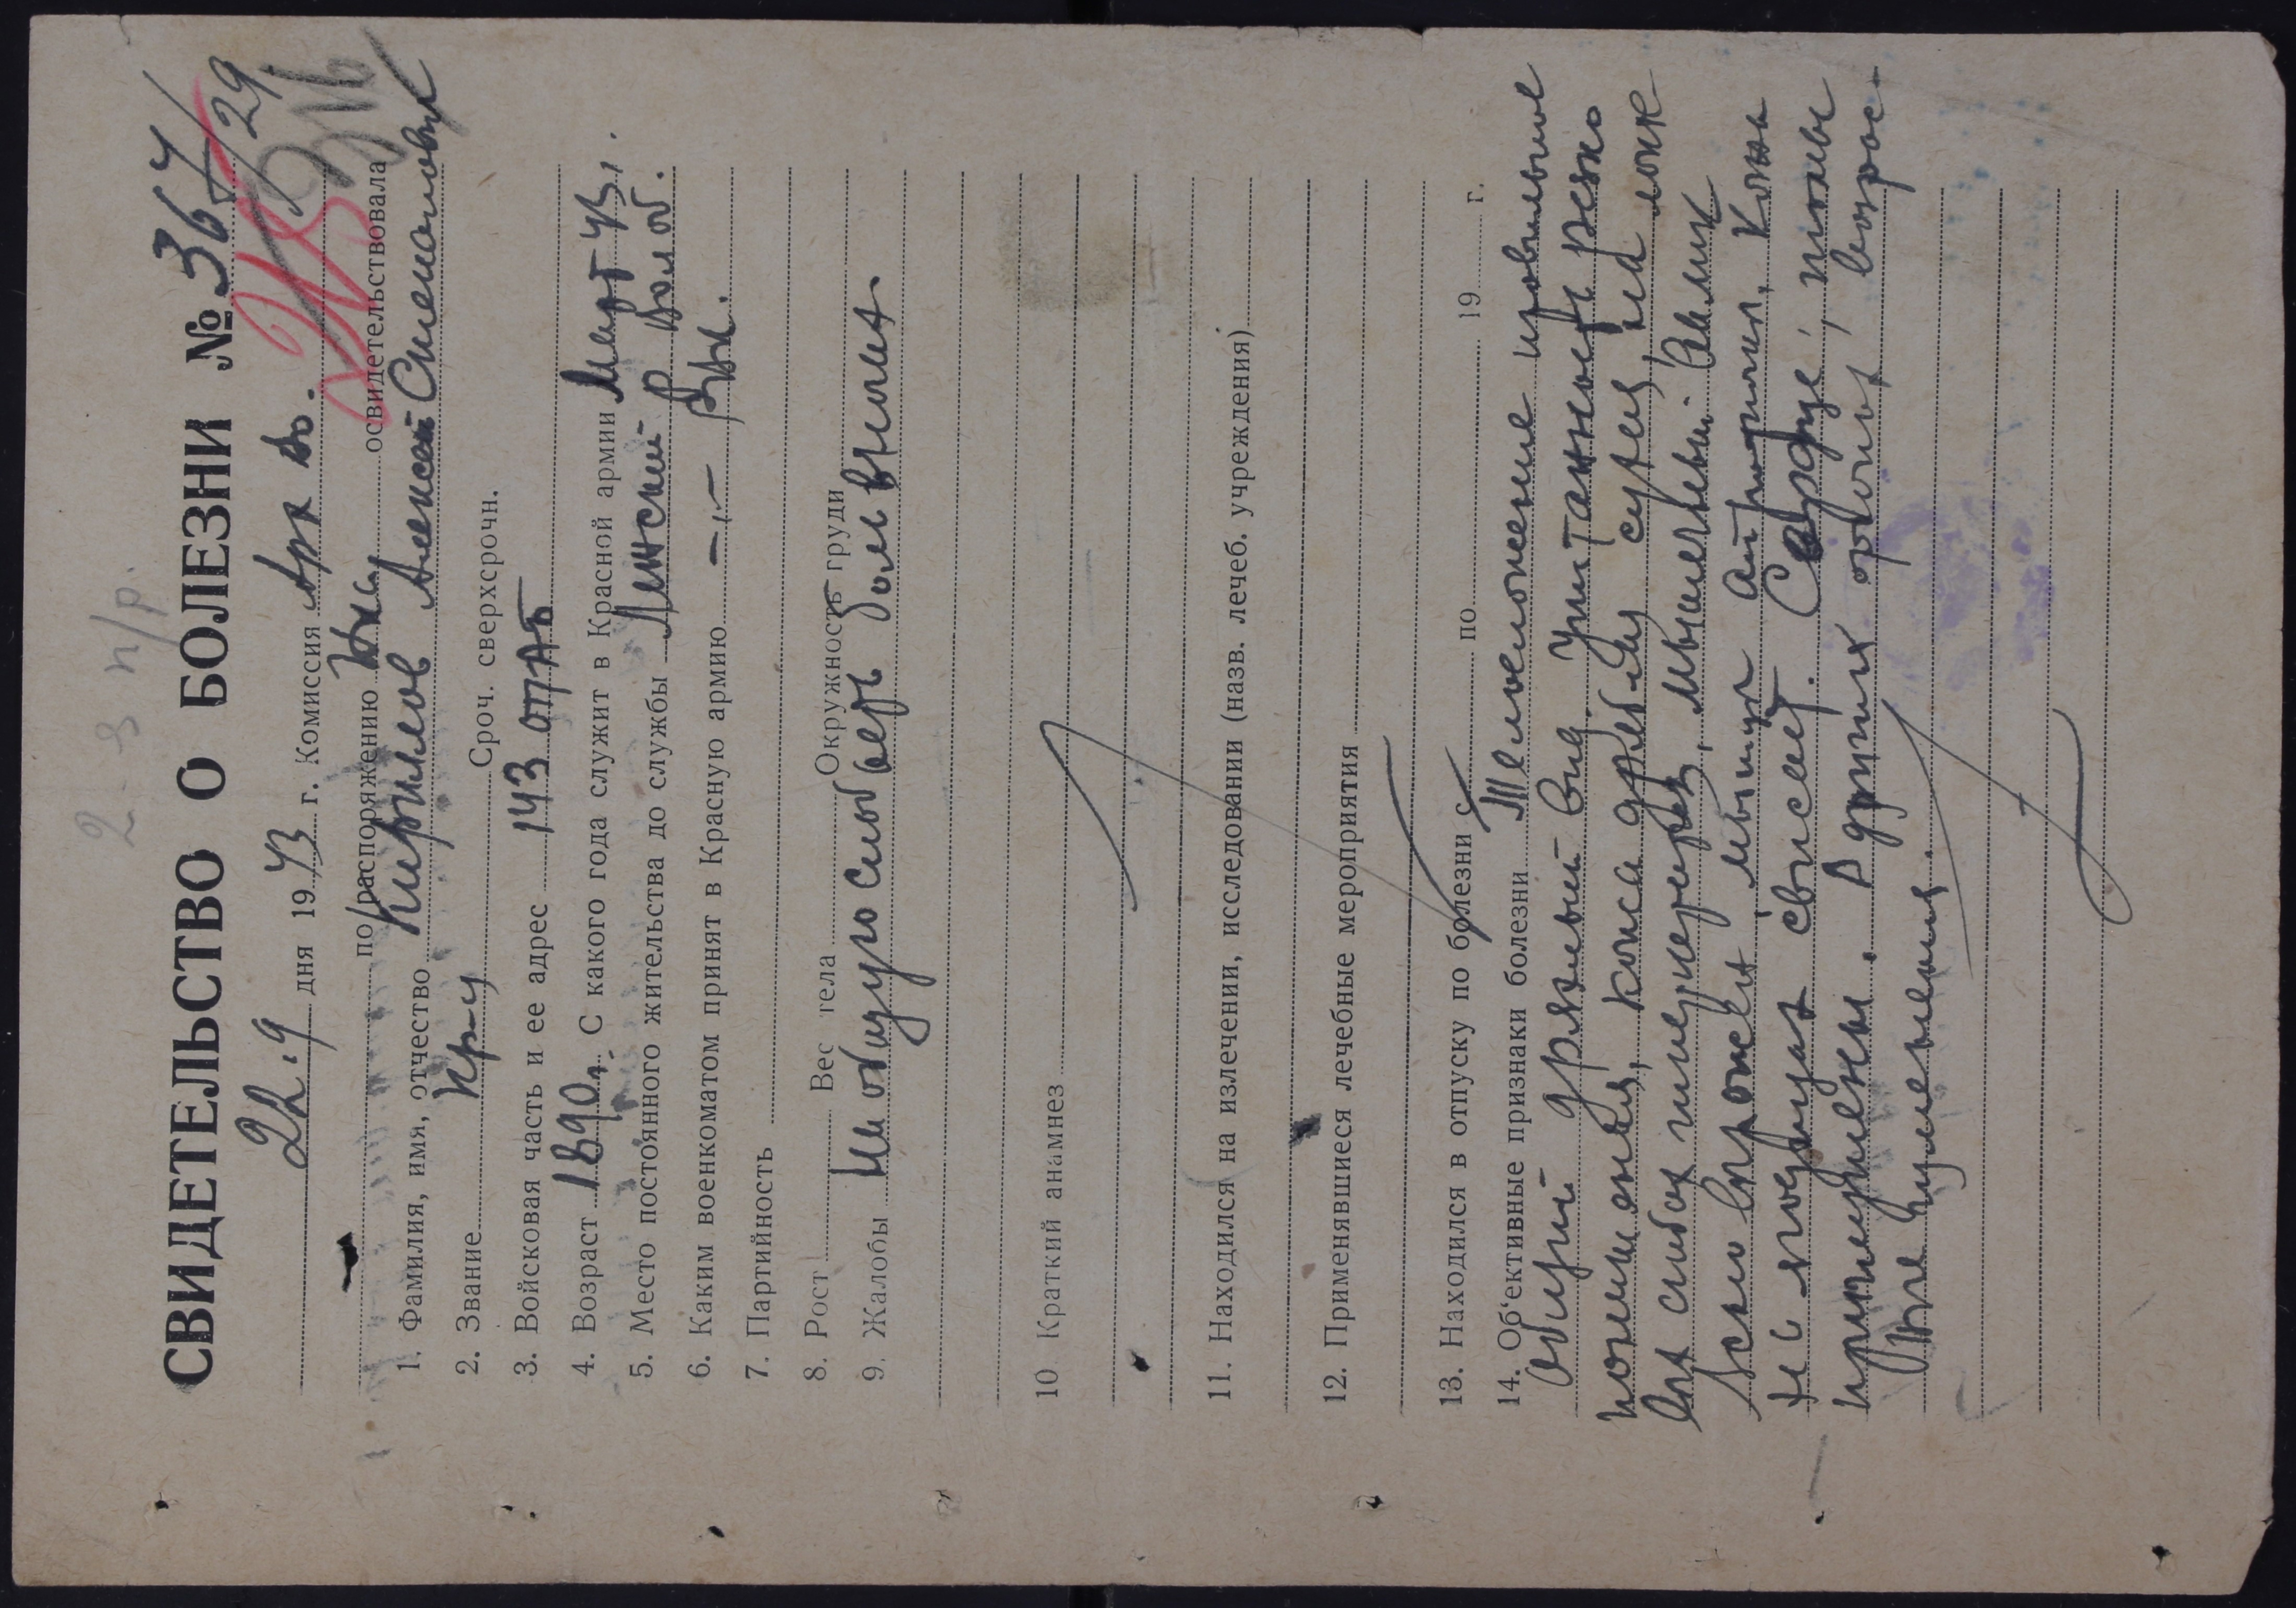 2-э п/р.
СВИДЕТЕЛЬСТВО О БОЛЕЗНИ № 367/29
22.9 дня 1943 г. Комиссия Арх во.
по распоряжению освидетельствовала
1. Фамилия, имя, отчество Кирилов Алексей
2. Звание кр-ц Сроч. сверхсрочн.
3. Войсковая часть и ее адрес 143 ОТАБ
4. Возраст 1890 г. С какого года служит в Красной армии Март 43 г.
5. Место постоянного жительства до службы Ленский р Волог.
6. Каким военкоматом принят в Красную армию —„— Рвк.
7. Партийность
8. Рост Вес тела Окружность груди
9. Жалобы На общую слабость боли в ногах.
10 Краткий анамнез
11. Находился на излечении, исследовании (назв. лечеб. учреждения)
12. Применявшиеся лечебные мероприятия
13. Находился в отпуску по болезни с по 19 г.
14. Об‘ективные признаки болезни Телосложение правильное
общий дряхлый вид. Упитанность резко
понижена, кожа дряблая сухая, на
сгибах мышечный
слабо выражен, мышцы атрофичн. Кожа
на ягодицах свисает. Сердце, тоны
приглушены. В других органах возраст-
ные изменения.